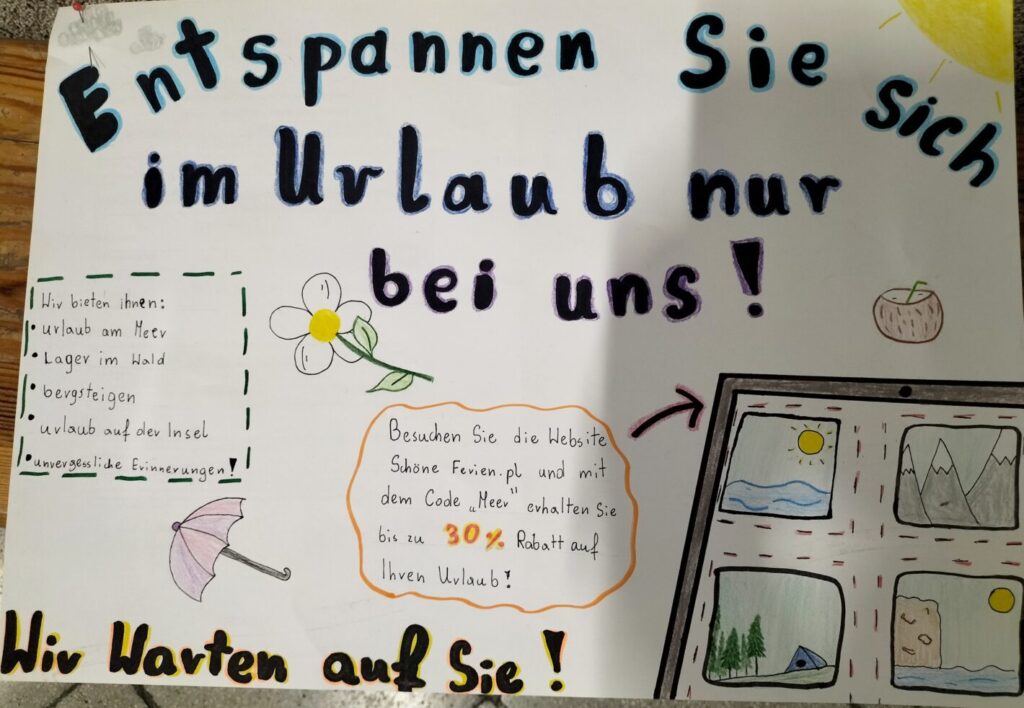 Entspannen Sie sich
im Urlaub nur
bei uns!
Wir bieten ihnen:
• urlaub am Meer
• Lager im Wald
• bergsteigen
• urlaub auf der Insel
• unvergessliche Erinnerungen!
Besuchen Sie die Website
Schöne Ferien.pl und mit
dem Code „Meer" erhalten Sie
bis zu 30% Rabatt auf
Ihren Urlaub!
Wir Warten auf Sie!